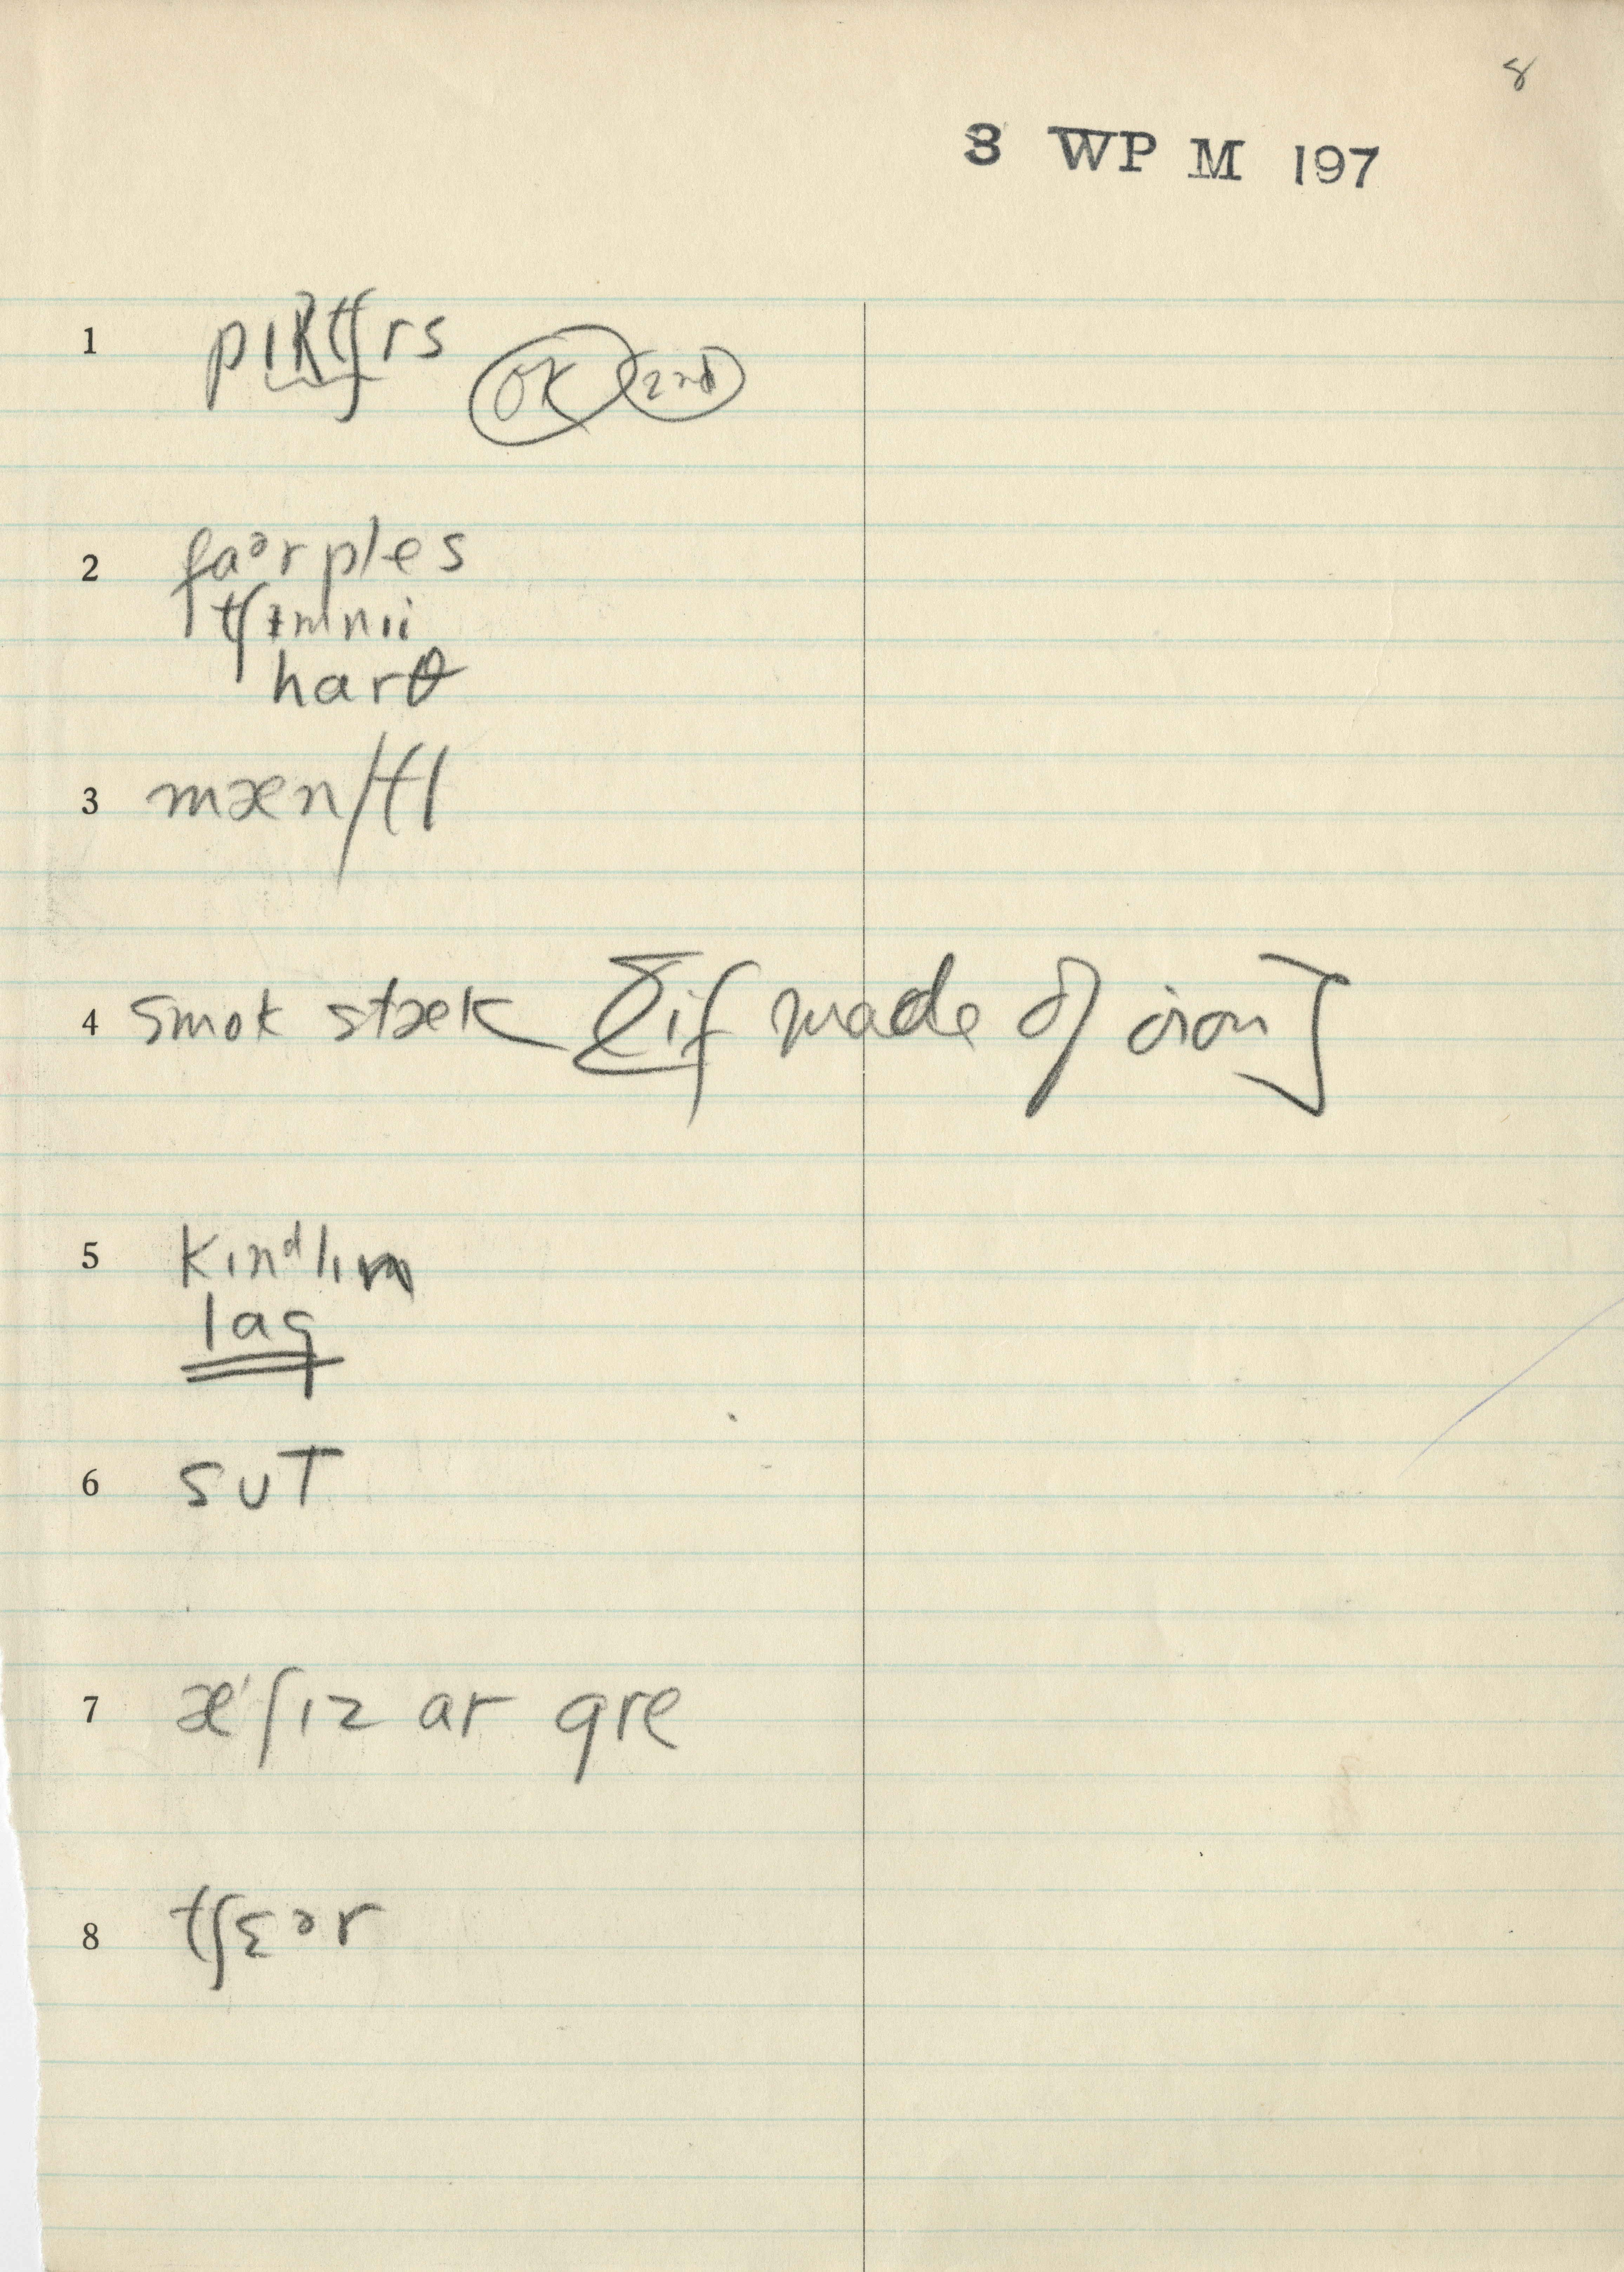 8
3 WP M 197
1 pɪktʃrs OK 2nd
2 faᵊrples
tʃɪmnii
harθ
3 mæn/tl
4 smok stæk [if made of iron]
5 kɪnᵈlɪŋ
lag
6 sᴜT
7 æʃɪz ar gre
8 tʃɛər